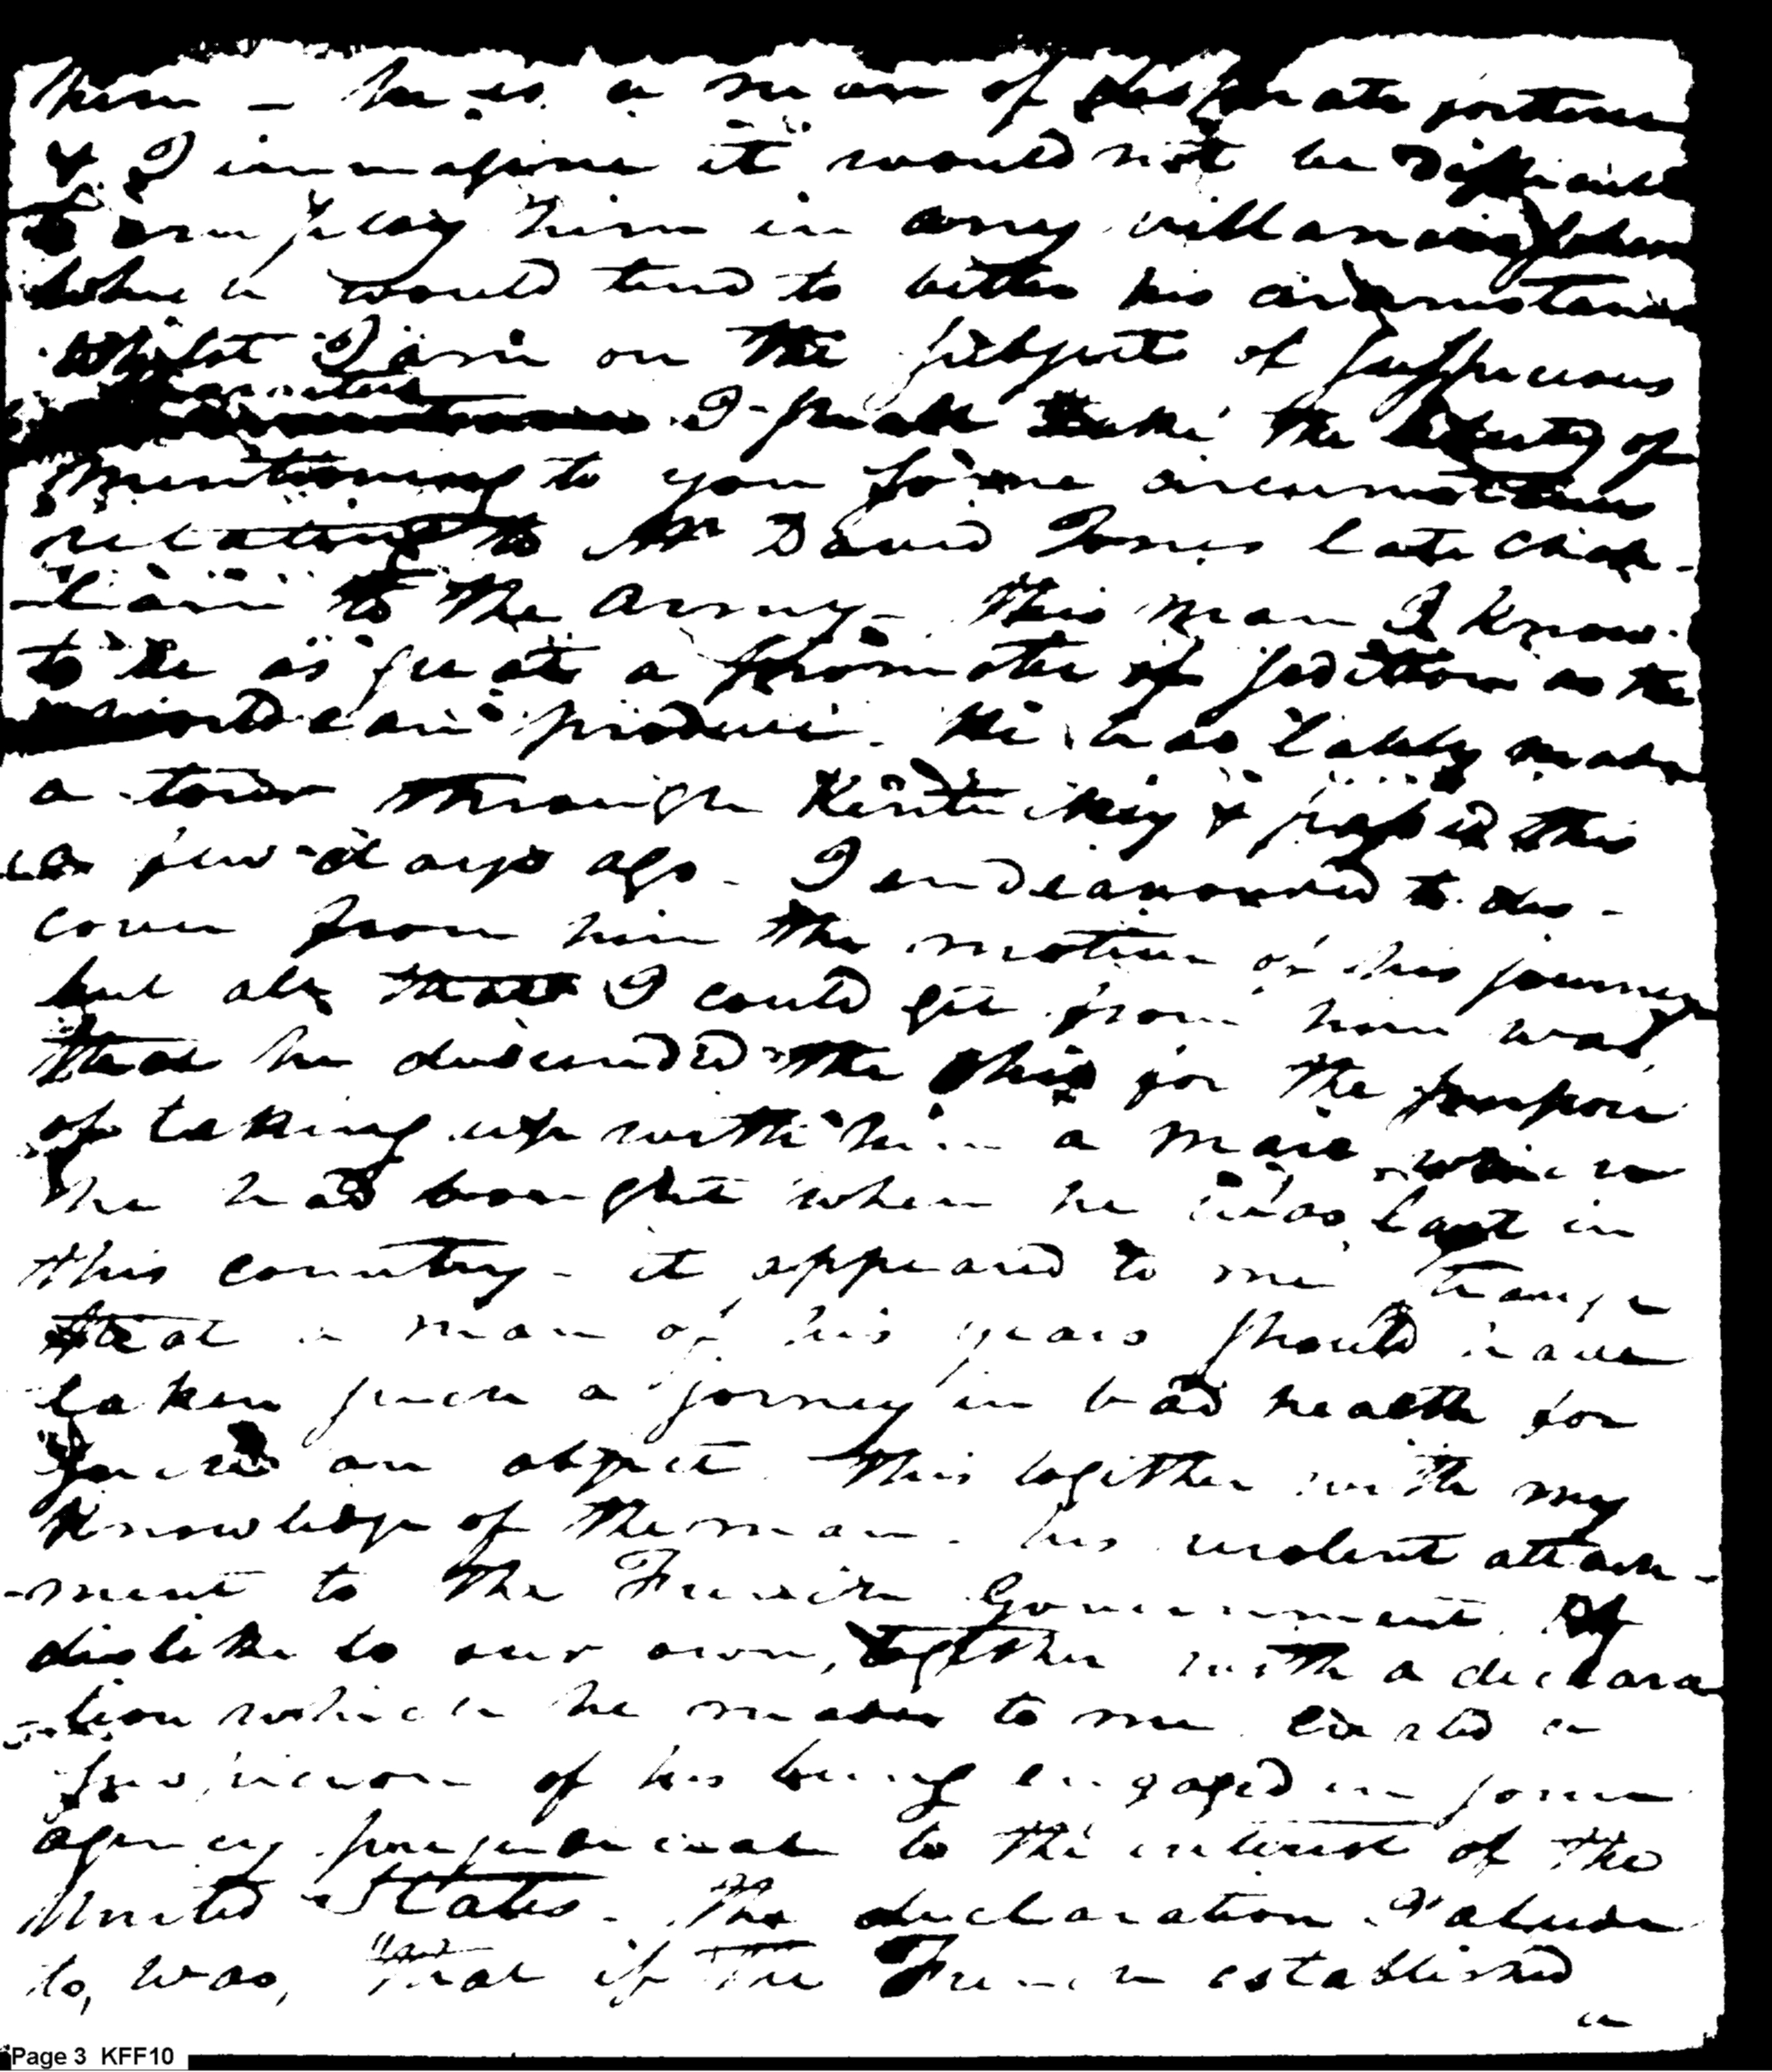 them – he is a man of desperate fortune
& I immagine it would not be difficult
to employ him in any villanous
which would tend to better his circumstances
Whilst I am on the subject of suspicious
I shall take the liberty of
mentioning to you some circumstances
relating to Mr David Jones late chap-
-lain to the Army – this man I know
to be as great a promoter of sedition as the
world can produce. He has lately made
a tour through Kentuckey & passed this
a few days ago – I endeavoured to dis-
cover from him the motive of his journey
but all that I could get from him was,
that he descended the Ohio for the purpose
of taking up with him a mare which
he had bought when he was last in
this country – it appeared to me strange
that a man of his years should have
taken such a jorney in bad health for
such an object. This together with my
knowledge of the man – his violent attach-
-ment to the French Government &
dislike to our own, together with a declara
-tion which he made to me created a
suspicion of his being engaged in some
agency prejudicial to the interest of the
United States – The declaration I alude
to, was, "that if the French established
a
Page 3 KFF10